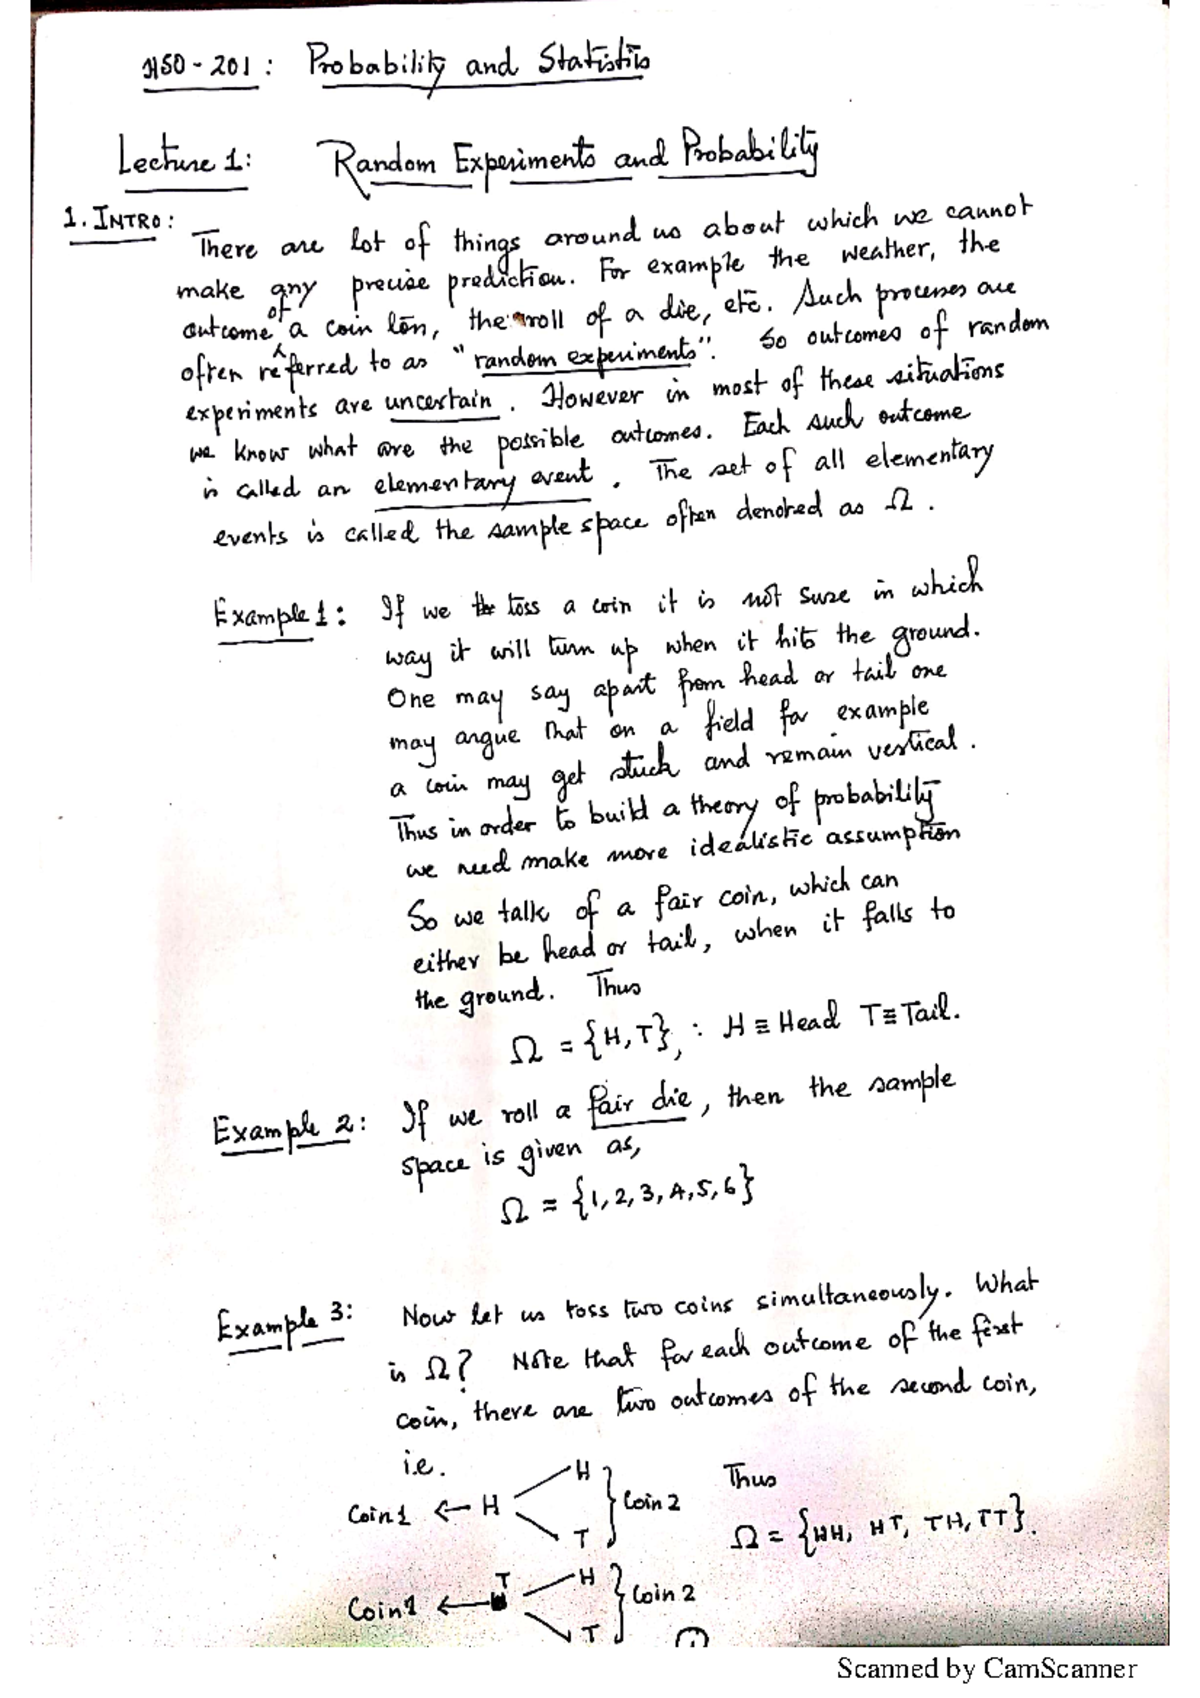 HSO-201: Probability and Statistics
Lecture 1: Random Experiments and Probability
1. INTRO:
There are lot of things around us about which we cannot
make any precise prediction. For example the weather, the
outcome of a coin toss, the roll of a die, etc. Such processes are
often referred to as "random experiments". So outcomes of random
experiments are uncertain. However in most of these situations
we know what are the possible outcomes. Each such outcome
is called an elementary event. The set of all elementary
events is called the sample space often denoted as Ω.
Example 1: If we toss a coin it is not sure in which
way it will turn up when it hits the ground.
One may say apart from head or tail one
may argue that on a field for example
a coin may get stuck and remain vertical.
Thus in order to build a theory of probability
we need make more idealistic assumption
So we talk of a fair coin, which can
either be head or tail, when it falls to
the ground. Thus
Ω = {H, T}, : H ≡ Head T ≡ Tail.
Example 2: If we roll a fair die, then the sample
space is given as,
Ω = {1, 2, 3, 4, 5, 6}
Example 3: Now let us toss two coins simultaneously. What
is Ω? Note that for each outcome of the first
coin, there are two outcomes of the second coin,
i.e.
H
Coin 1 ← H } Coin 2
T
Thus
Ω = {HH, HT, TH, TT}.
H
Coin 1 ← T } Coin 2
T
1
Scanned by CamScanner